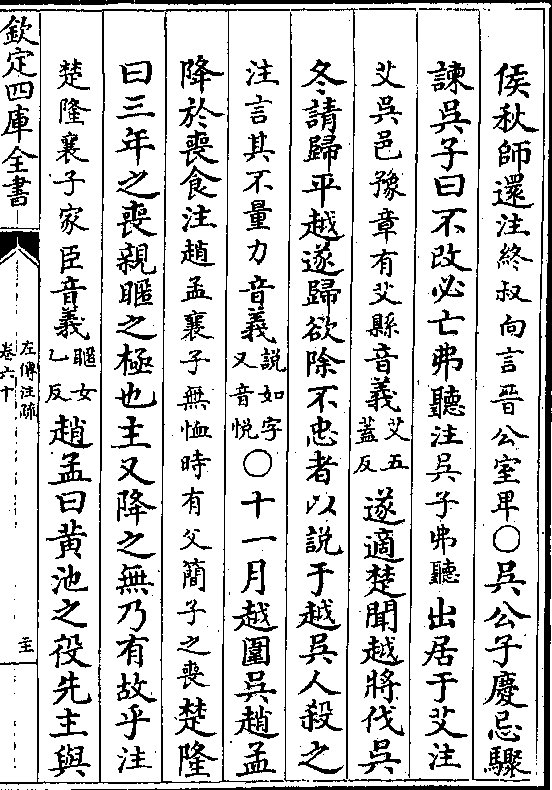 侯秋師還注終叔向言晉公室卑○吳公子慶忌驟
諫吳子曰不改必亡弗聽注吳子弗聽出居于艾注
艾吳邑豫章有艾縣音義艾五蓋反遂適楚聞越將伐吳
冬請歸平越遂歸欲除不忠者以說于越吳人殺之
注言其不量力音義說如字又音悅○十一月越圍吳趙孟
降於喪食注趙孟襄子無恤時有父簡子之喪楚隆
曰三年之喪親暱之極也主又降之無乃有故乎注
楚隆襄子家臣音義暱女乙反趙孟曰黃池之役先主與
欽定四庫全書
左傳注疏
卷六十